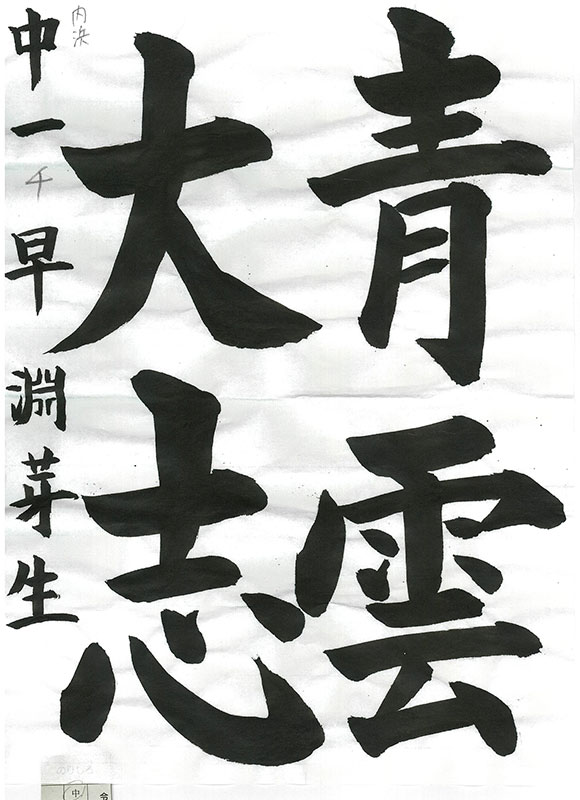 青雲
大志
内浜
中一 千 早淵芽生
中
令